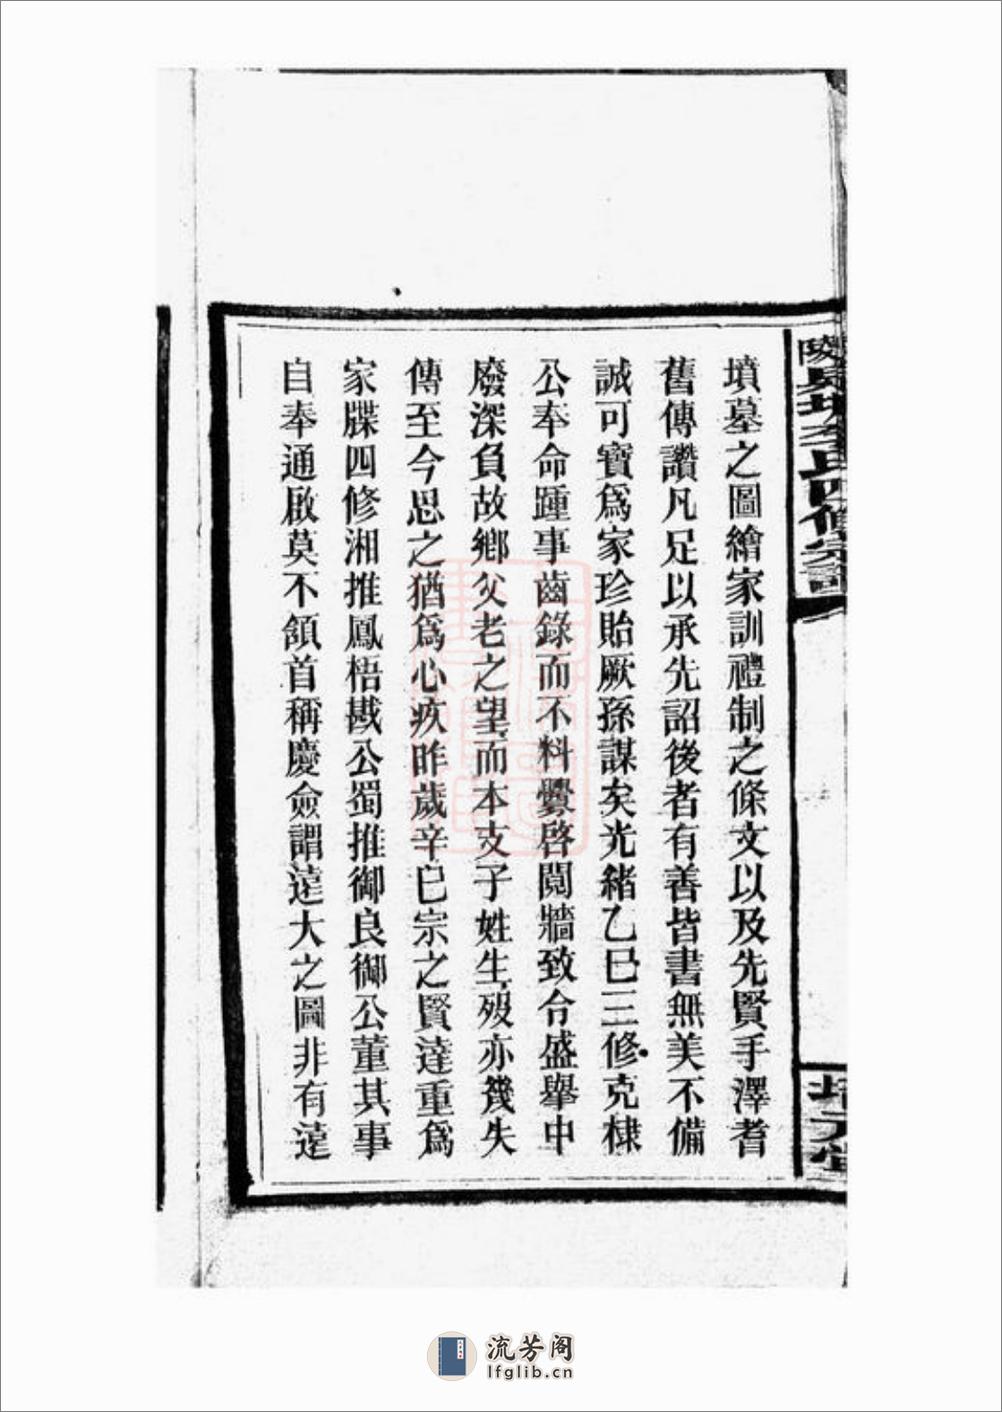 墳墓之圖繪家訓禮制之條文以及先賢手澤耆
舊傳讚凡足以承先詔後者有善皆書無美不備
誠可寶爲家珍貽厥孫謀矣光緒乙巳三修克棣
公奉命踵事齒錄而不料釁啓鬩牆致令盛舉中
廢深負故鄉父老之望而本支子姓生殁亦幾失
傳至今思之猶爲心疚昨歲辛巳宗之賢達重爲
家牒四修湘推鳳梧戡公蜀推御良御公董其事
自奉通啟莫不頷首稱慶僉謂遠大之圖非有遠
流芳阁
lfglib.cn